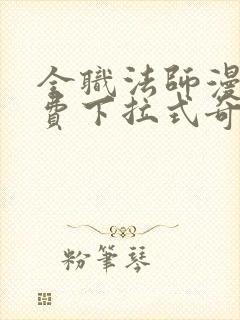 全職法師漫
費下拉式奇
粉筆琴